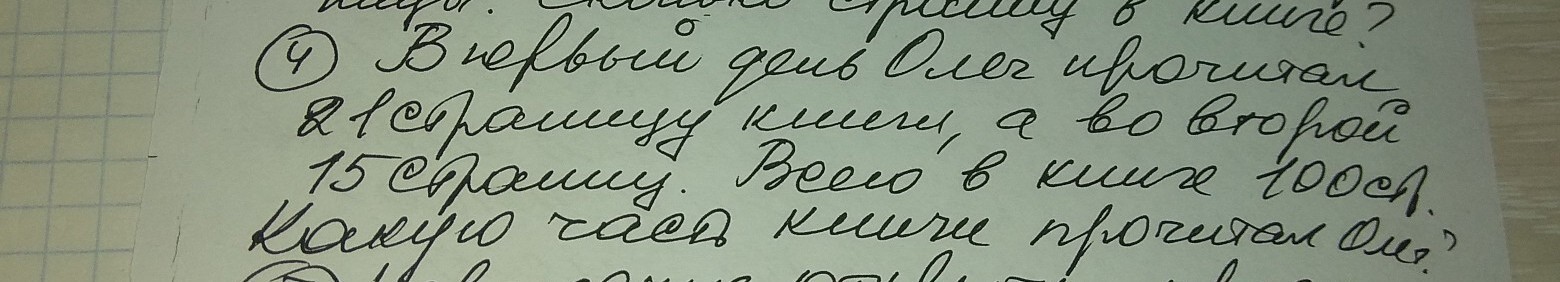 ницы. Сколько страниц в книге?
④ В первый день Олег прочитал
21 страницу книги, а во второй
15 страниц. Всего в книге 100 ст.
Какую часть книги прочитал Олег?